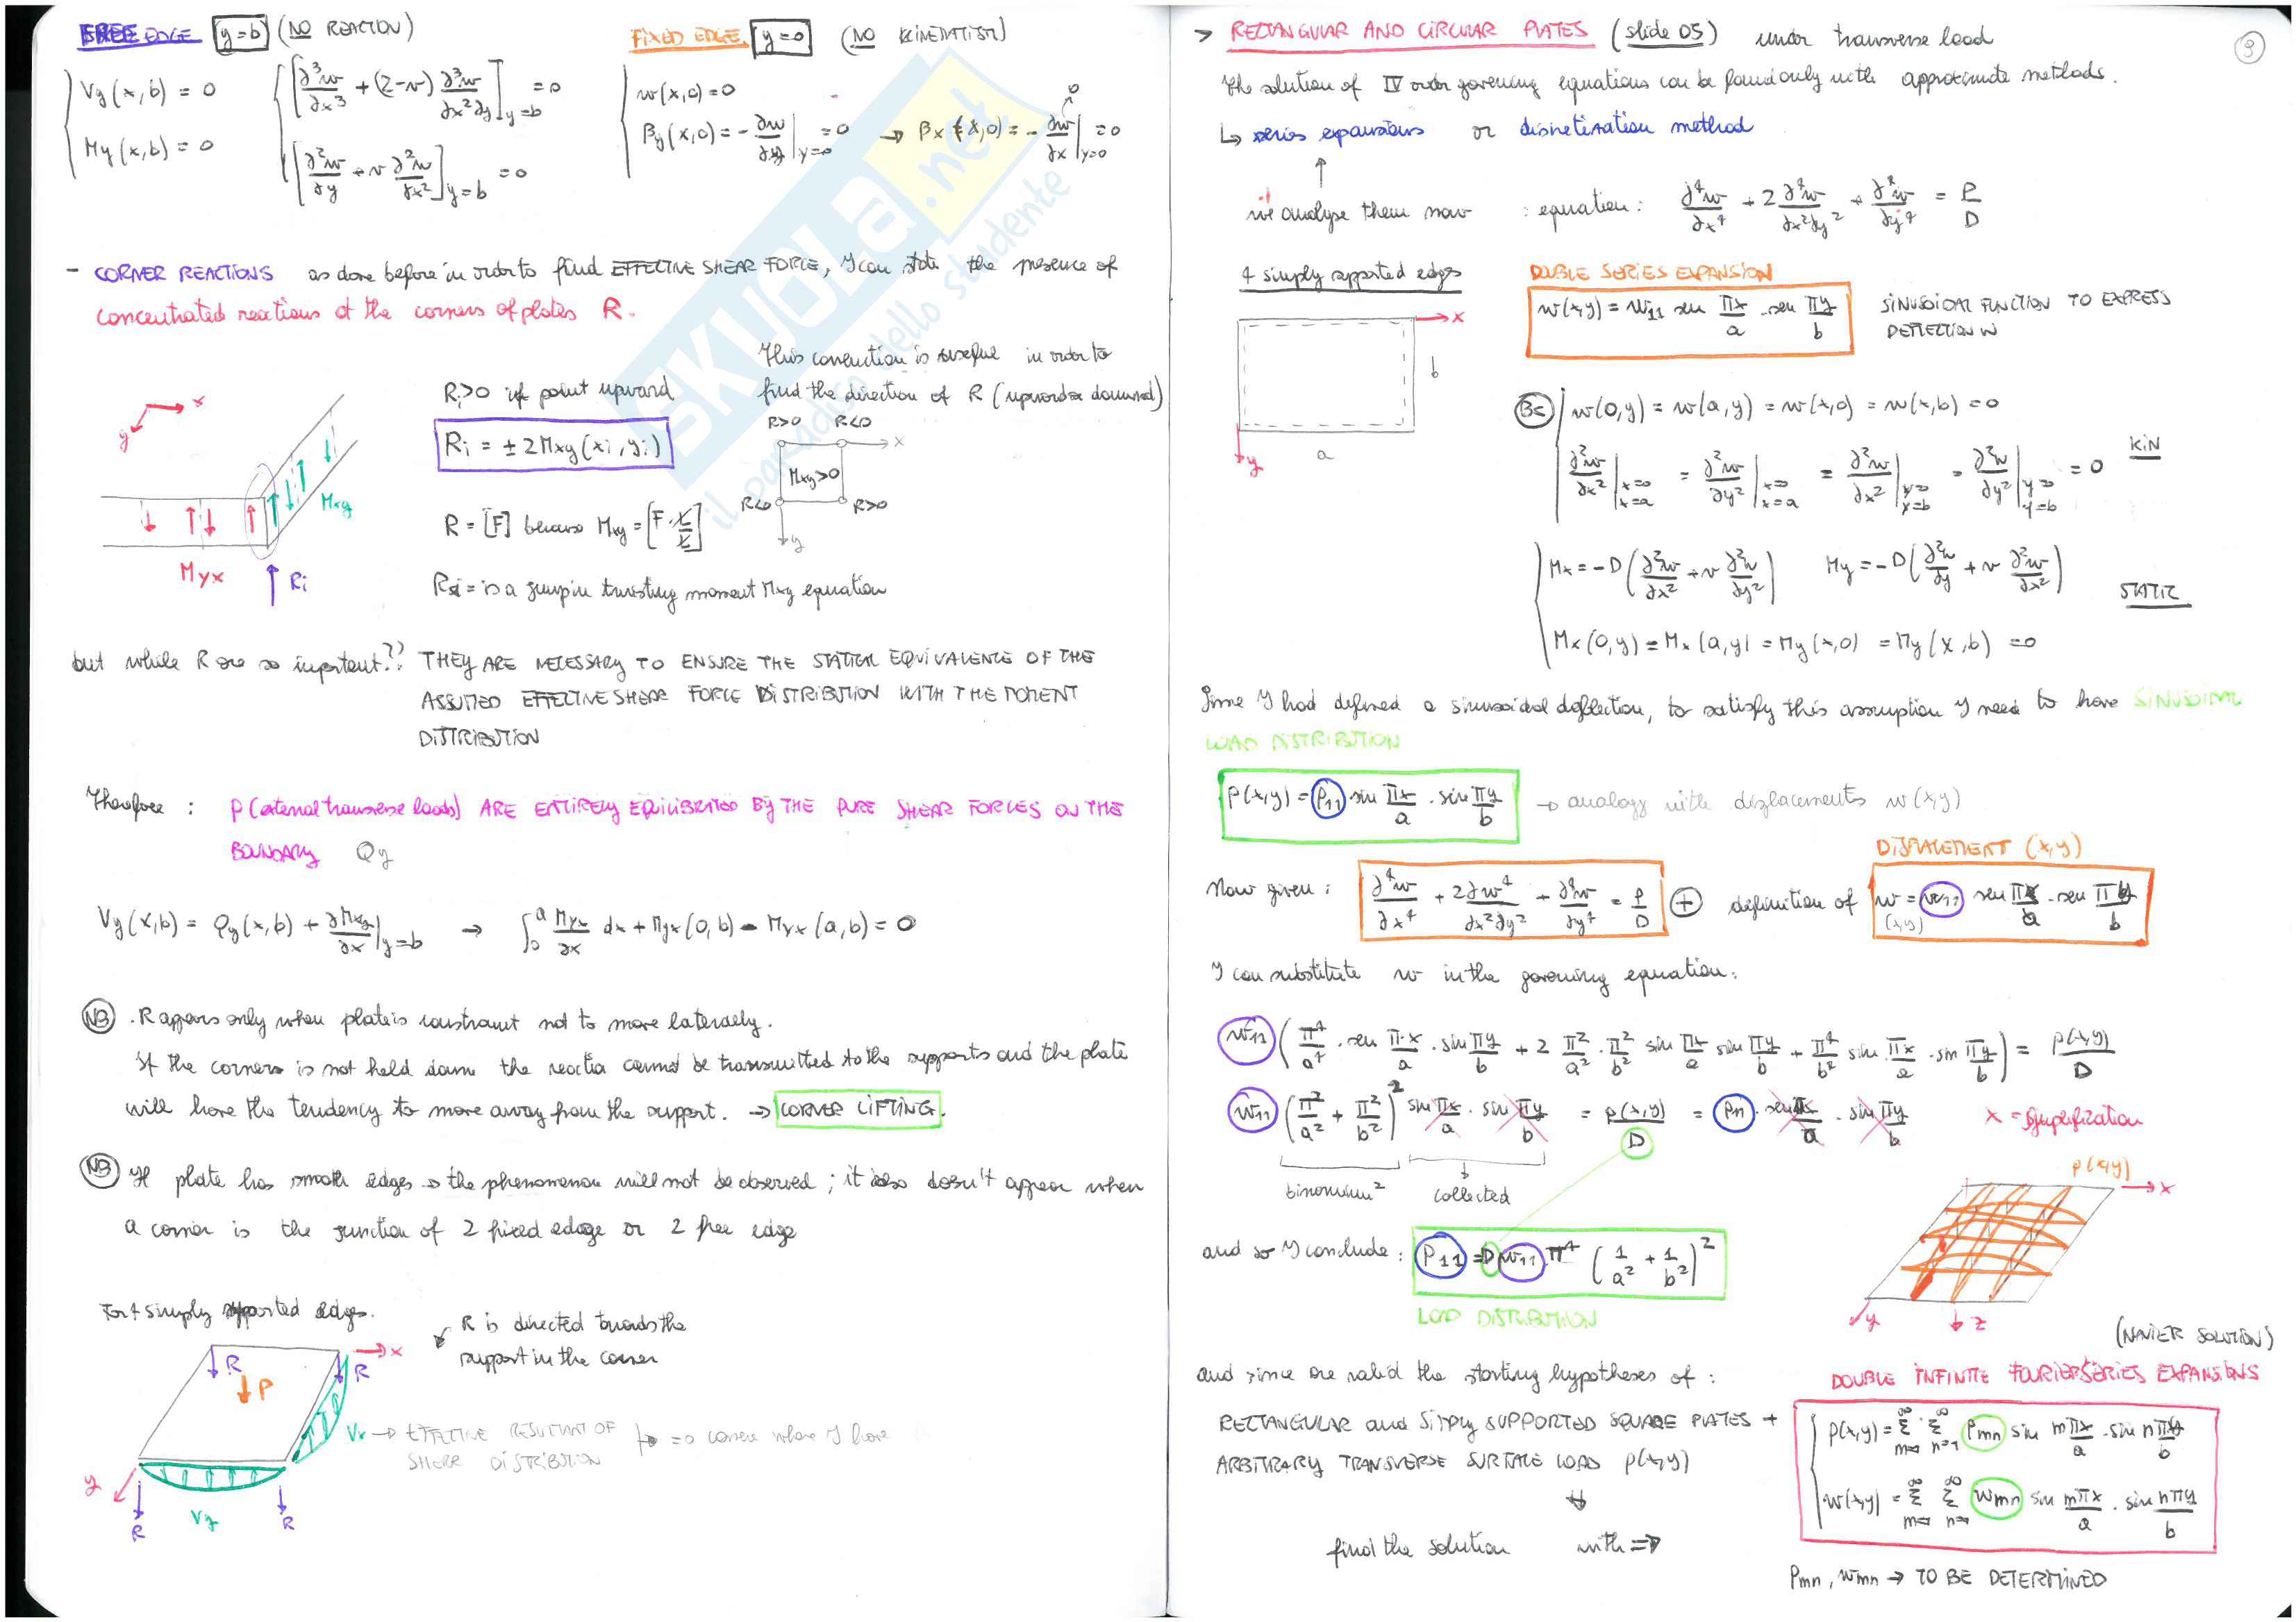 FREE EDGE y=b (NO REACTION)
Vy(x,b) = 0
My(x,b) = 0
[∂³w/∂x³ + (2-ν) ∂³w/∂x²∂y]y=b = 0
[∂²w/∂y + ν ∂²w/∂x²]y=b = 0
FIXED EDGE y=0 (NO KINEMATISM)
w(x,0) = 0
βy(x,0) = - ∂w/∂y|y=0 = 0 → βx(x,0) = - ∂w/∂x|y=0 = 0
0
- CORNER REACTIONS as done before in order to find EFFECTIVE SHEAR FORCE, I can state the presence of
concentrated reactions at the corners of plates R.
x
y
Mxy
Myx
Ri
Ri>0 if point upward
Ri = ± 2Mxy(xi, yi)
R = [F] because Mxy = [F·L/L]
Ri = is a jump in twisting moment Mxy equation
This convenction is useful in order to
find the direction of R (upward or downward)
R>0 R<0
x
Mxy>0
R<0 R>0
y
but while R are so important?? THEY ARE NECESSARY TO ENSURE THE STATICAL EQUIVALENCE OF THE
ASSUMED EFFECTIVE SHEAR FORCE DISTRIBUTION WITH THE MOMENT
DISTRIBUTION
Therefore : P(external transverse loads) ARE ENTIRELY EQUILIBRATED BY THE PURE SHEAR FORCES ON THE
BOUNDARY Qy
Vy(x,b) = Qy(x,b) + ∂Mxy/∂x|y=b → ∫0a Myx/∂x dx + Myx(0,b) - Myx(a,b) = 0
NB . R appears only when plate is constraint not to move laterally.
If the corners is not held down the reaction cannot be transmitted to the supports and the plate
will have the tendency to move away from the support. → CORNER LIFTING.
NB If plate has smooth edges → the phenomenon will not be observed ; it also doesn't appear when
a corner is the junction of 2 fixed edge or 2 free edge
For 4 simply supported edges.
R is directed towards the
support in the corner
R
P
x
R
Vx → EFFECTIVE RESULTANT OF
SHEAR DISTRIBUTION
=0 corner where I have
y
R
Vy
R
3
> RECTANGULAR AND CIRCULAR PLATES (slide 05) under transverse load
The solution of IV order governing equations can be found only with approximate methods.
↳ series expansions or discretisation method
↑
we analyse them now : equation: ∂⁴w/∂x⁴ + 2 ∂⁴w/∂x²∂y² + ∂⁴w/∂y⁴ = P/D
4 simply supported edges
x
b
a
y
DOUBLE SERIES EXPANSION
w(x,y) = w11 sen πx/a · sen πy/b
SINUSOIDAL FUNCTION TO EXPRESS
DEFLECTION W
BC w(0,y) = w(a,y) = w(x,0) = w(x,b) = 0
∂²w/∂x²|x=0 x=a = ∂²w/∂y²|x=0 x=a = ∂²w/∂x²|y=0 y=b = ∂²w/∂y²|y=0 y=b = 0
KIN
Mx = -D(∂²w/∂x² + ν ∂²w/∂y²) My = -D(∂²w/∂y + ν ∂²w/∂x²)
STATIC
Mx(0,y) = Mx(a,y) = My(x,0) = My(x,b) = 0
Since I had defined a sinusoidal deflection, to satisfy this assumption I need to have SINUSOIDAL
LOAD DISTRIBUTION
P(x,y) = P11 sin πx/a · sin πy/b → analogy with displacements w(x,y)
DISPLACEMENT (x,y)
Now given : ∂⁴w/∂x⁴ + 2∂w⁴/∂x²∂y² + ∂⁴w/∂y⁴ = P/D + definition of w(x,y) = w11 sen πx/a · sen πy/b
I can substitute w in the governing equation:
w11 (π⁴/a⁴ · sen π·x/a · sin πy/b + 2 π²/a² · π²/b² sin πx/a sin πy/b + π⁴/b² sin πx/a · sin πy/b) = p(x,y)/D
w11 (π²/a² + π²/b²)² sin πx/a · sin πy/b = p(x,y)/D = P11 · sen πx/a · sin πy/b
x = simplification
binomium² collected
and so I conclude : P11 = D w11 π⁴ (1/a² + 1/b²)²
LOAD DISTRIBUTION
p(x,y)
x
y
z
(NAVIER SOLUTION)
and since are valid the starting hypotheses of :
RECTANGULAR and SIMPLY SUPPORTED SQUARE PLATES +
ARBITRARY TRANSVERSE SURFACE LOAD p(x,y)
find the solution with ⇒
DOUBLE INFINITE FOURIER SERIES EXPANSIONS
P(x,y) = Σm=1∞ Σn=1∞ Pmn sin mπx/a · sin nπy/b
w(x,y) = Σm=1∞ Σn=1∞ Wmn sin mπx/a · sin nπy/b
Pmn, Wmn → TO BE DETERMINED
SKUOLA.net
il paradiso dello studente